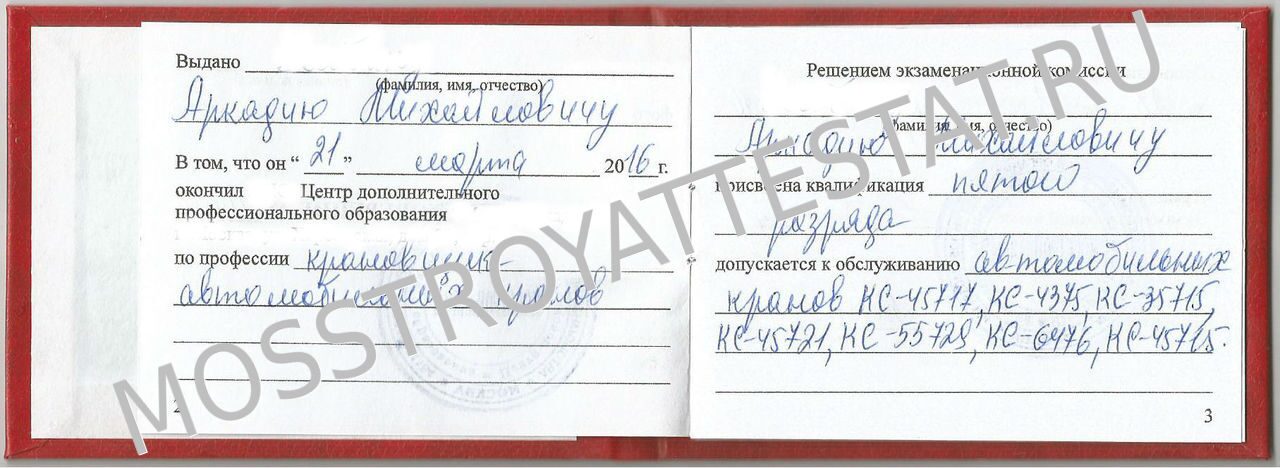 Выдано
(фамилия, имя, отчество)
Аркадию Михайловичу
В том, что он “ 21 ” марта 2016 г.
окончил Центр дополнительного
профессионального образования
по профессии крановщик-
автомобильных кранов
2
Решением экзаменационной комиссии
(фамилия, имя, отчество)
Аркадию Михайловичу
присвоена квалификация пятого
разряда
допускается к обслуживанию автомобильных
кранов КС-45717, КС-4375, КС-35715,
КС-45721, КС-55729, КС-6476, КС-45715.
3
MOSSTROYATTESTAT.RU